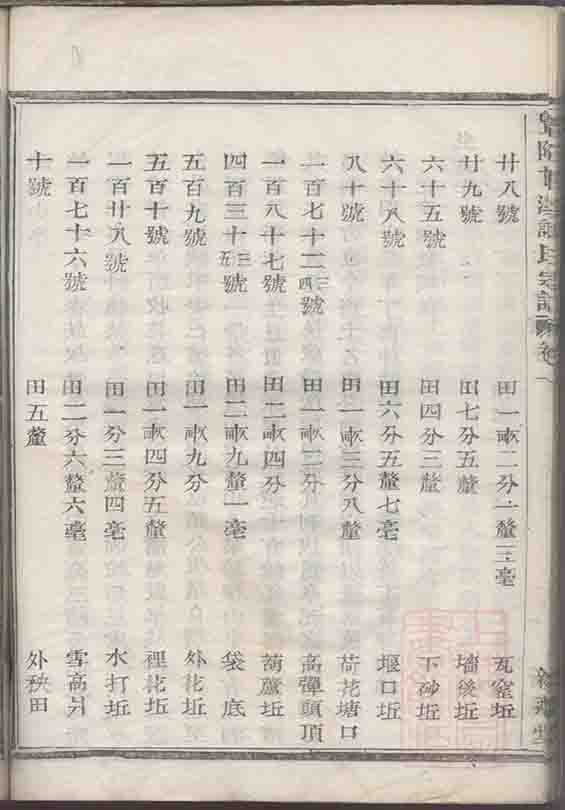 氏宗譜 卷八
廿八號 田一畝二分一釐三毫 瓦窰坵
廿九號 田七分五釐 墻後坵
六十五號 田四分三釐 下砂坵
六十八號 田六分五釐七毫 堰口坵
八十號 田一畝三分八釐 荷花塘口
一百七十二三四號 田一畝二分 高彈頭頂
一百八十七號 田二畝四分 葫蘆坵
四百三十三五號 田二畝九釐一毫 袋底
五百九號 田一畝九分 外花坵
五百十號 田一畝四分五釐 裡花坵
一百廿八號 田一分三釐四毫 水打坵
一百七十六號 田二分六釐六毫 雪高
十號 田五釐 外秧田